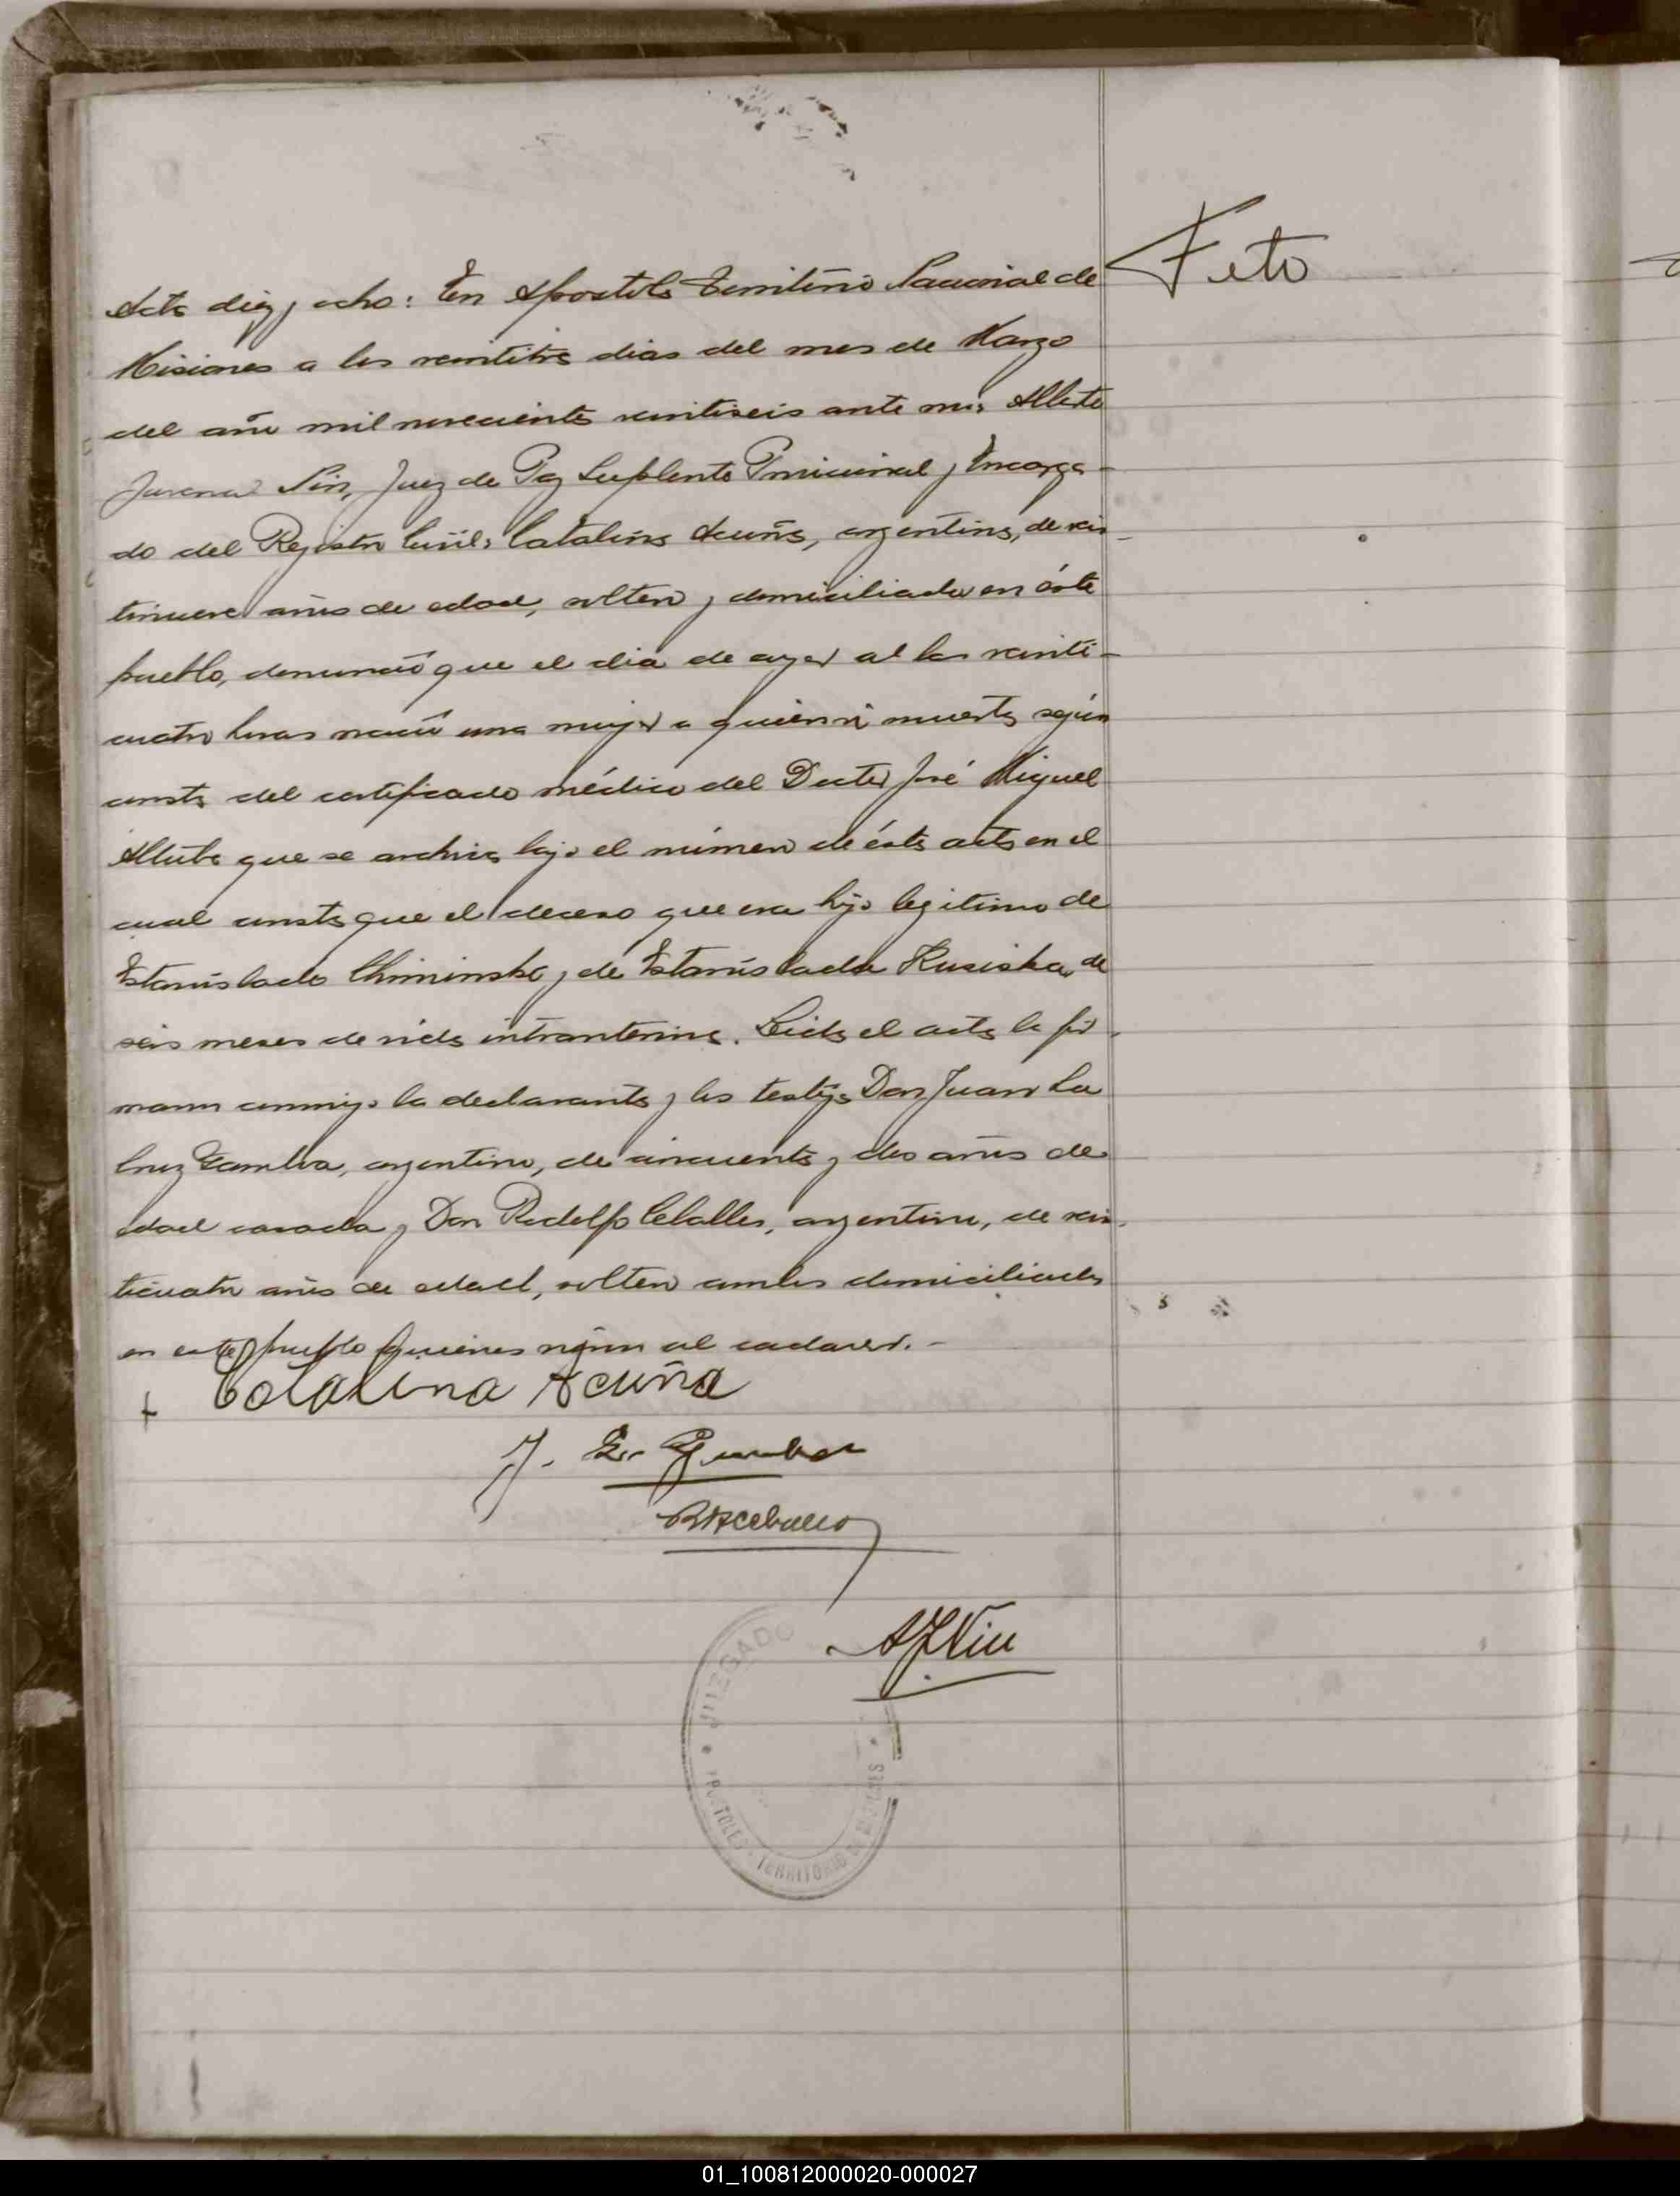 Feto
Acta diez y ocho: En Apostoles Territorio Nacional de
Misiones a los veintitres dias del mes de Marzo
del año mil novecientos veintiseis ante mi, Alberto
Juez de Paz Suplente y Encarga-
do del Registro Civil, Catalina Acuña, argentina, de vein-
tinueve años de edad, soltera y domiciliada en éste
pueblo, denunció que el dia de ayer a las veinti-
cuatro horas nació una mujer a quien vi muerta según
consta del certificado médico del Doctor José Miguel
que se archiva bajo el número de ésta acta en el
cual consta que el deceso que era hijo legitimo de
Estanislado Chiminski y de Estanislada Rusiska, de
seis meses de vida intrauterina. Leida el acta la fir-
maron conmigo la declarante y los testigos Don Juan La
Cruz Gamboa, argentino, de cincuenta y dos años de
edad casado y Don Rodolfo Ceballos, argentino, de vein-
ticuatro años de edad, soltero ambos domiciliados
en este pueblo quienes vieron al cadaver.-
Catalina Acuña
J. L. Gamboa
R Ceballos
JUZGADO
APOSTOLES - TERRITORIO DE MISIONES
01_100812000020-000027